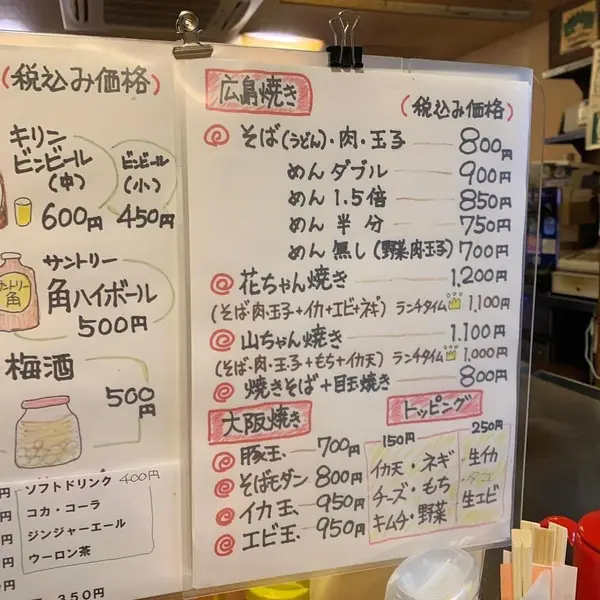 (税込み価格)
キリン
ビンビール
(中)
600円
ビンビール
(小)
450円
サントリー
角ハイボール
500円
角
梅酒
500円
ソフトドリンク 400円
コカ・コーラ
ジンジャーエール
ウーロン茶
350円
広島焼き
(税込み価格)
そば(うどん)・肉・玉子 800円
めん ダブル 900円
めん 1.5倍 850円
めん 半分 750円
めん 無し(野菜・肉・玉子) 700円
花ちゃん焼き 1,200円
(そば・肉・玉子+イカ+エビ+ネギ) ランチタイム 1,100円
山ちゃん焼き 1,100円
(そば・肉・玉子+もち+イカ天) ランチタイム 1,000円
焼きそば+目玉焼き 800円
大阪焼き
豚玉 700円
そばモダン 800円
イカ玉 950円
エビ玉 950円
トッピング
150円
イカ天・ネギ
チーズ・もち
キムチ・野菜
250円
生イカ
タコ
生エビ